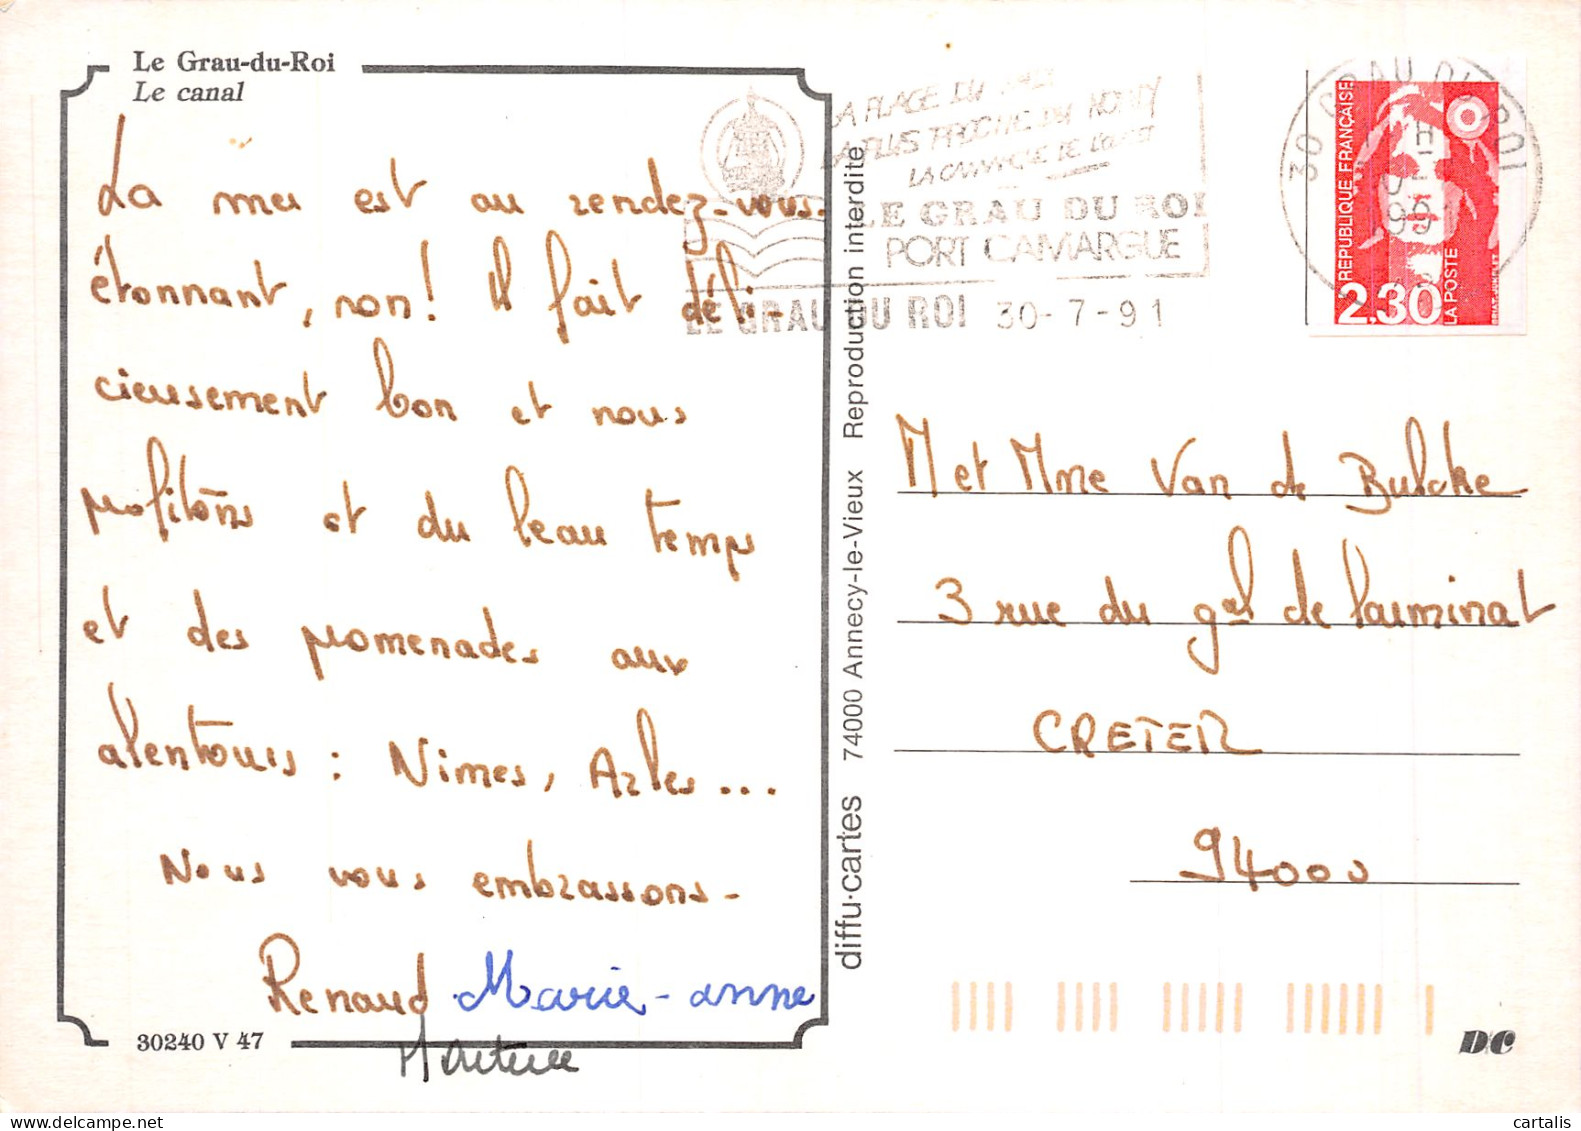 Le Grau-du-Roi
Le canal
La mer est au rendez-vous.
étonnant, non! Il fait déli-
cieusement bon et nous
profitons et du beau temps
et des promenades aux
alentours : Nimes, Arles...
Nous vous embrassons-
Renaud Marie-anne
30240 V 47
diffu·cartes 74000 Annecy-le-Vieux Reproduction interdite
LA PLAGE DU
LA PLUS PROCHE DU
LE GRAU DU ROI
PORT CAMARGUE
LE GRAU DU ROI 30-7-91
30 GRAU DU ROI
REPUBLIQUE FRANÇAISE
2,30
LA POSTE
M et Mme Van de Bulcke
3 rue du gal de Larminat
CRETEIL
94000
DC
cartalis